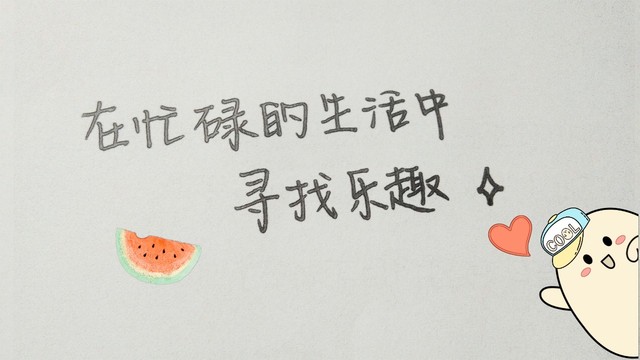 在忙碌的生活中
寻找乐趣
COOL